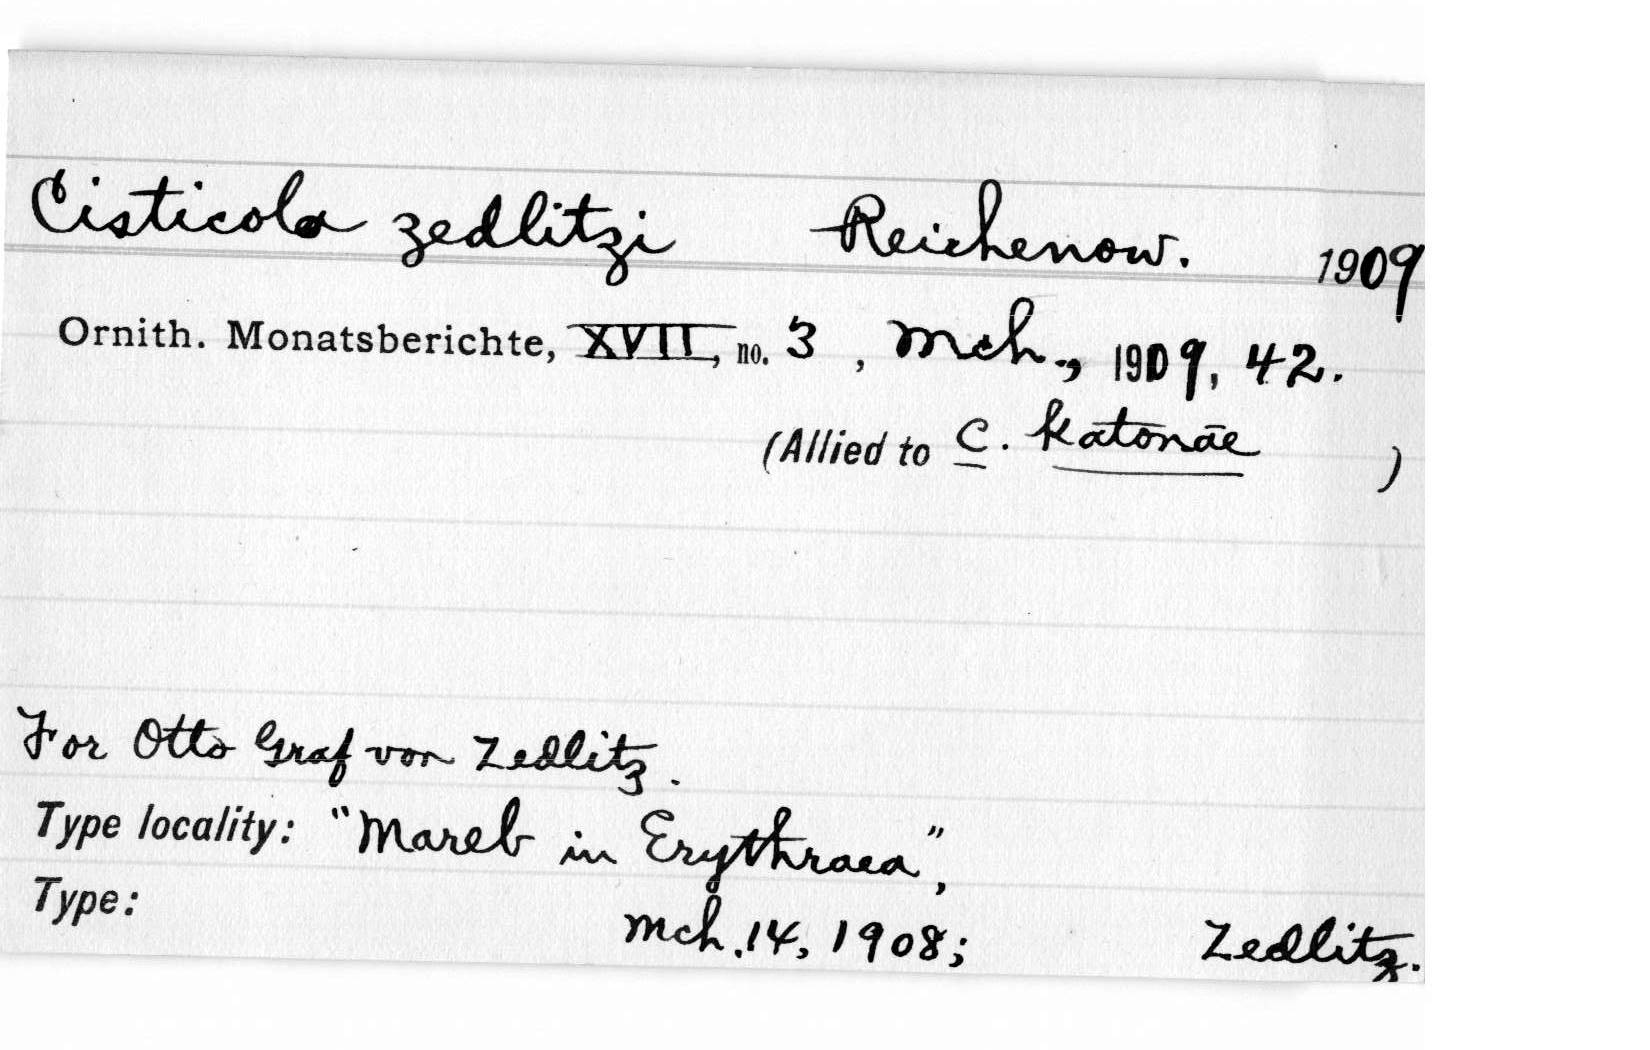 Cisticola zedlitzi Reichenow. 1909
Ornith. Monatsberichte, XVII, no. 3, Mch., 1909, 42.
(Allied to C. katonae)
For Otto Graf von Zedlitz.
Type locality: "Mareb in Erythraea",
Type: Mch. 14, 1908; Zedlitz.